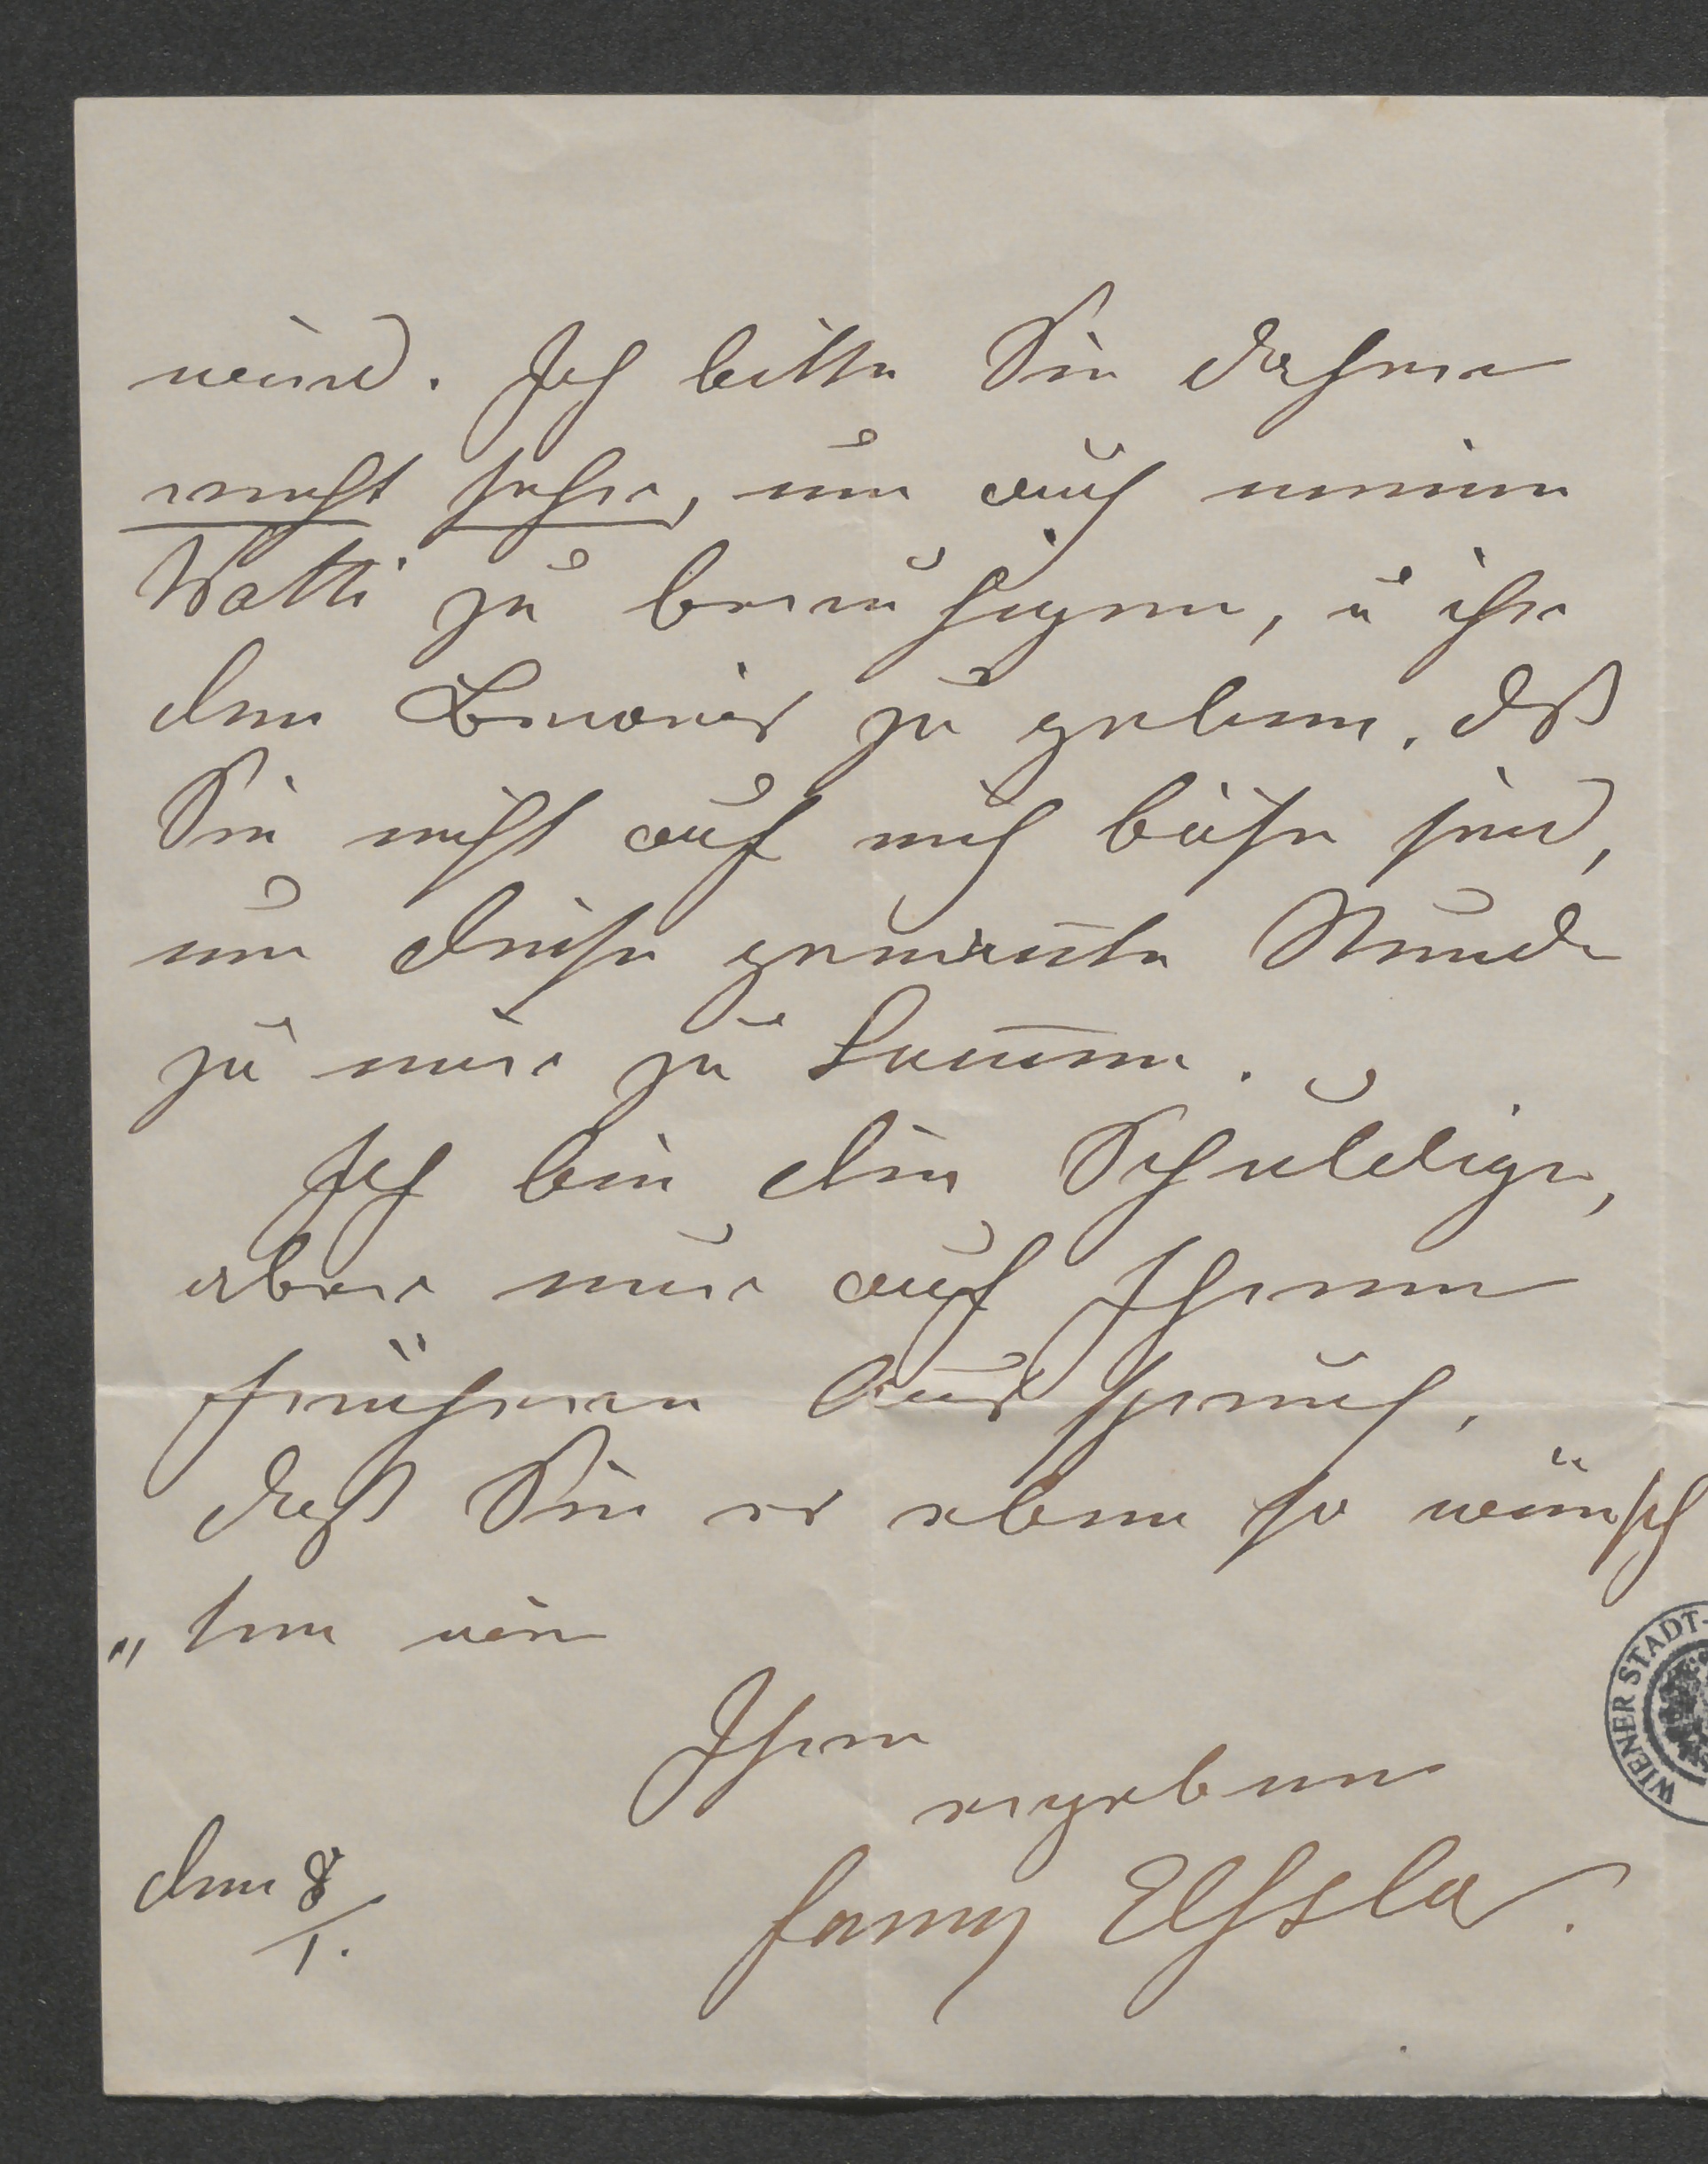 wird. Ich bitte Sie daher
recht sehr, um auch meine
Watti zu beruhigen, u ihr
den Beweis zu geben, dß
Sie nicht auf mich böse sind,
um diese gewisse Stunde
zu mir zu kom̅en.
Ich bin die Schuldige,
aber nur auf Ihren
früheren Ausspruch,
daß Sie es eben so wünsch
„ten wie
Ihre
ergebene
Fanny Elssler.
den 8/1.
WIENER STADT-